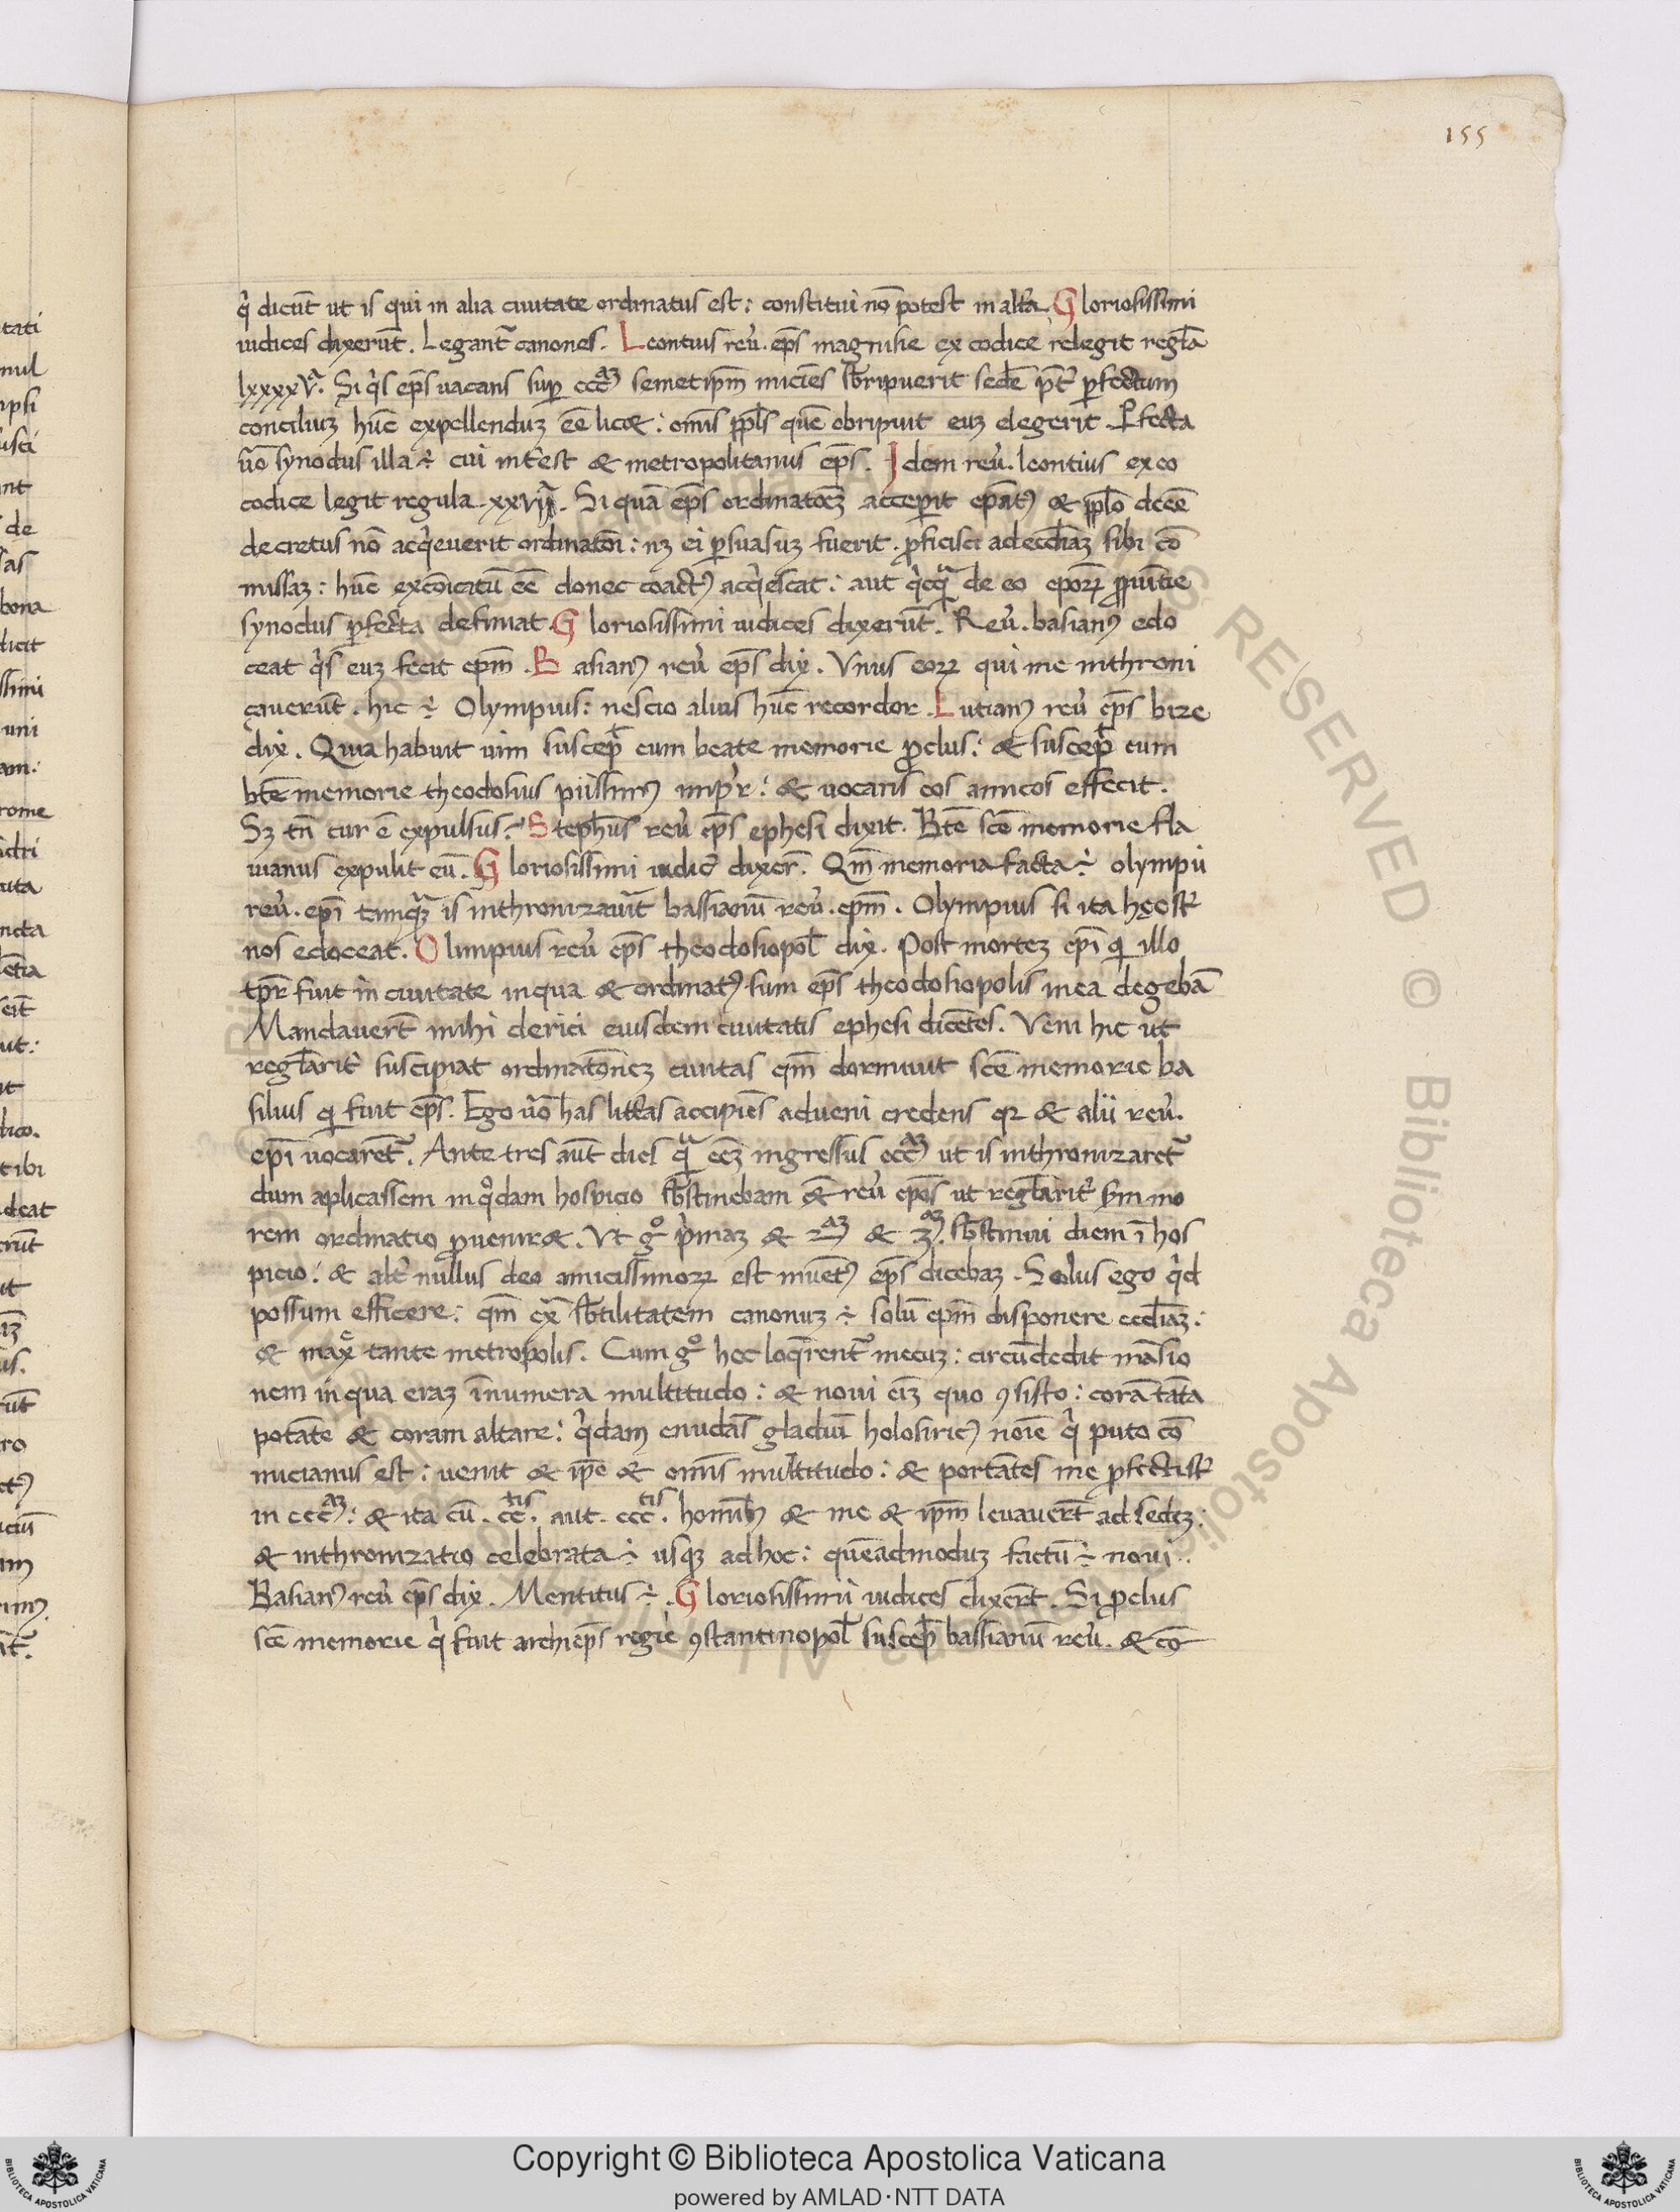 155
q̇ dicūt ut is qui in alia ciuitate ordinatus est: constitui nō potest in alt̄a. Gloriosissimi
iudices dixerūt. Legant̃ canones. Leontius reũ. ep̄s magnisie ex codice relegit regl̄a
lxxxxvᵃ. Si q̇s ep̄s uacans sup̱ eccᵃꝫ semetip̄m iniciēs sb̄ripuerit sedē p̱t̃ p̱fectum
conciliuꝫ hūc expellenduꝫ eē licet: om̄is pp̄ls quē obripuit euꝫ elegerit. P̱fecta
ũo synodus illa ÷ cui int̃est & metropolitanus ep̄s. Idem reũ. leontius ex eo
codice legit regula xxviiᵃ. Si quā ep̄s ordinatoēꝫ acceperit ep̄at᷒ & pp̄lo dc̄eē
decretus nō acq̇euerit ordinatōi: nꝫ ei p̱suasuꝫ fuerit. ꝓficisci ad eccl̄iaꝫ sibi cō
missaꝫ: hūc excōicatū eē donec coact᷒ acq̇escat: aut q̇cq̃ de eo epoꝝ ꝓuītie
synodus p̱fecta definiat. Gloriosissimi iudices dixerūt. Reũ. basian᷒ edo
ceat q̇s euꝫ fecit ep̄m. Basian᷒ reũ ep̄s dix̄. Vnus eoꝝ qui me inthroni
çauerūt. hic ÷ Olympius: nescio alius hūc recordor. Lutian᷒ reũ ep̄s bize
dix̄. Quia habuit uim suscep̃ eum beate memorie ꝓclus: & suscep̃ eum
bt̄e memorie theodosius piissim᷒ imp̱r: & uocans eos amicos effecit.
Sꝫ tn̄ cur ē expulsus. Steph̄us reũ ep̄s ephesi dixit. Bt̄e sc̄e memorie fla
uianus expulit eū. Gloriosissimi iudic̄ dixer̄. Qm̄ memoria facta ÷ olympii
reũ. ep̄i tamq̃ꝫ is inthronizauit̃ bassianū reũ. ep̄m. Olympius si ita hc̨
nos edoceat. Olimpius reũ ep̄s theodosiopol̄ dix̄. Post mortez ep̄i q̇ illo
tp̄r fuit in ciuitate in qua & ordinat᷒ sum ep̄s theodosiopolis in ea degebā
Mandauer̄t mihi clerici eiusdem ciuitatis ephesi dicētes. Veni hic ut
regl̄arit̃ suscipiat ordinatōneꝫ ciuitas qm̄ dormiuit sc̄e memorie ba
silius q̇ fuit ep̄s. Ego ũo has litt̄as accipiēs adueni credens qꝫ & alii reũ.
ep̄i uocarēt̃. Ante tres aūt dies q̃ eēꝫ ingressus eccᵃꝫ ut is inthronizaret̃
dum aplicassem in q̊dam hospicio sb̄stinebam & reũ ep̄os ut regl̄arit̃ sm̄ mo
rem ordinatio ꝓueniret. Vt gᵒ p̓maꝫ & 2ᵃꝫ & 3ᵃꝫ. sb̄stinui diem ī hos
picio: & alt̃ nullus deo amicissimoꝝ est inuēt᷒ ep̄s dicebaꝫ. Solus ego q̇d
possum efficere: qm̄ ex̃ sb̄tilitatem canonuꝫ ÷ solū ep̄m disponere eccl̄iaꝫ:
& max̃ tante metropolis. Cum gᵒ hec loq̄rent̃ mecuꝫ: circūdedit māsio
nem in qua eraꝫ īnumera multitudo: & noui eiꝫ quo ꝯsisto: corā tāta
potāte & coram altare: q̇dam enudās gladiū holosiric᷒ noīe q̇ puto cō
micianus est: uenit & ip̄e & om̄is multitudo: & portātes me p̱fectist̃
in eccᵃꝫ: & ita cū. cc̄ᵗⁱˢ. aut. ccc̄ᵗⁱˢ. homib᷒ & me & ip̄m leuauer̄t ad sedeꝫ:
& inthronizatio celebrata ÷ usqꝫ ad hoc: quēadmoduꝫ factū ÷ noui.
Basian᷒ reũ ep̄s dix̄. Mentitus ÷. Gloriosissimi iudices dixer̄t. Si ꝓclus
sc̄e memorie q̇ fuit archiep̄s regie ꝯstantinopol̄ suscep̃ bassianū reũ. & cō
Copyright © Biblioteca Apostolica Vaticana
powered by AMLAD·NTT DATA